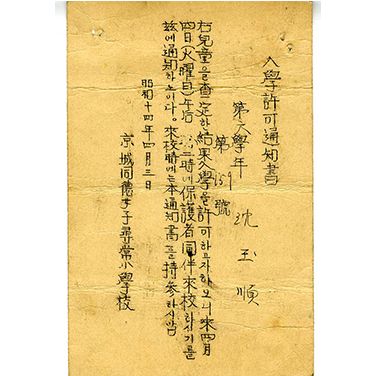 入學許可通知書
第六學年
第 159 號
沈玉順
右兒童을 查定한 結果 入學을 許可하고자 하오니 來四月
四日(火曜日)午后 二時에 保護者同伴 來校하시기를
玆에 通知하나이다。來校時에는 本通知書를 持參하시압
昭和十四年四月三日
京城同德女子尋常小學校